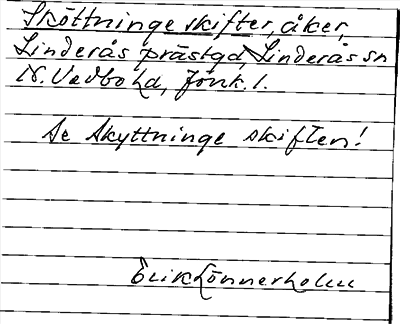 Sköttninge skifter, åker,
Linderås prästgd, Linderås sn
N. Vedbo hd, Jönk. l.
Se Skyttninge skiften!
Erik Lönnerholm